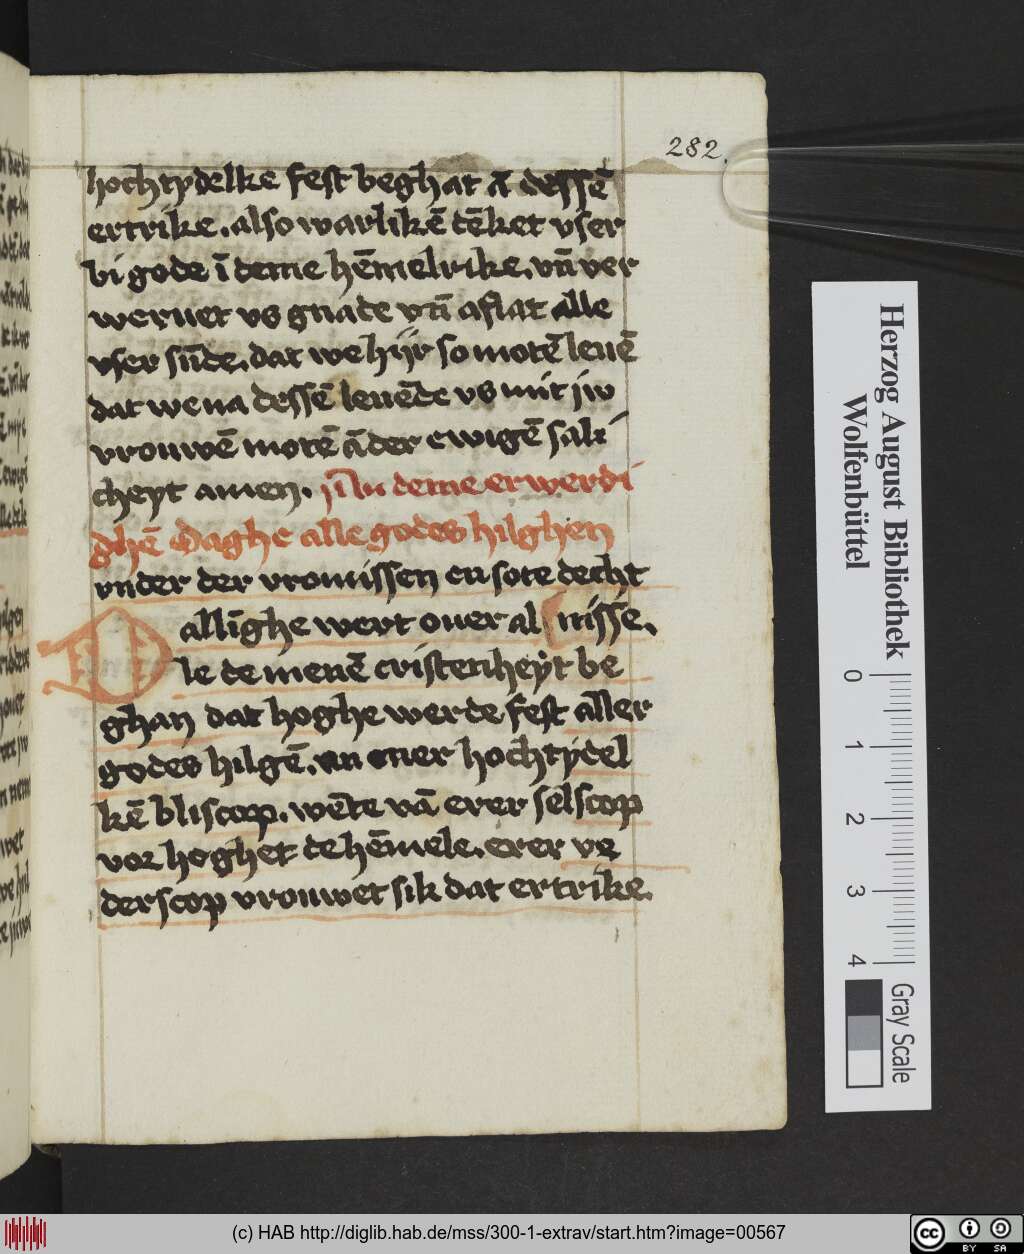 282.
hochtydelke fest beghat ā dessē
ertrike. also warlikē dēket vser
bi gode ī deme hēmelrike. vn̄ ver
weruet vs gnade vn̄ aflat alle
vser sūde. dat we hijr so motē leuē
dat we na dessē leuēde vs mit jw
vrouwē motē ā der ewigē sali
cheyt amen. In deme erwerdi
ghē daghe alle godes hilghen
vnder der vromissen en sote decht
allīghe wert ouer al nisse.
le de menē cristenheẏt be
ghan dat hoghe werde fest aller
godes hilgē. an ener hochtẏdel
kē bliscop. wēte vā erer selscop
vor hoghet de hēmele. erer ve
derscop vrouwet sik dat ertrike.
Herzog August Bibliothek
Wolfenbüttel
0 1 2 3 4
Gray Scale
(c) HAB http://diglib.hab.de/mss/300-1-extrav/start.htm?image=00567
cc BY SA